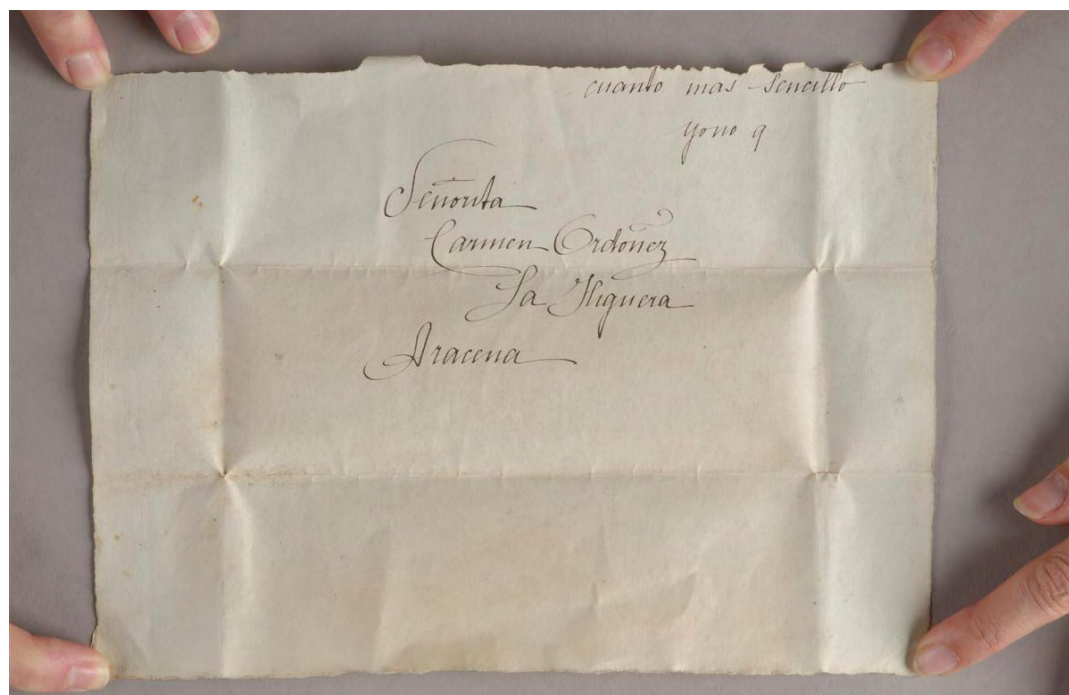 cuanto mas sencillo
yono q
Señorita
Carmen Ordoñez
La Higuera
Aracena